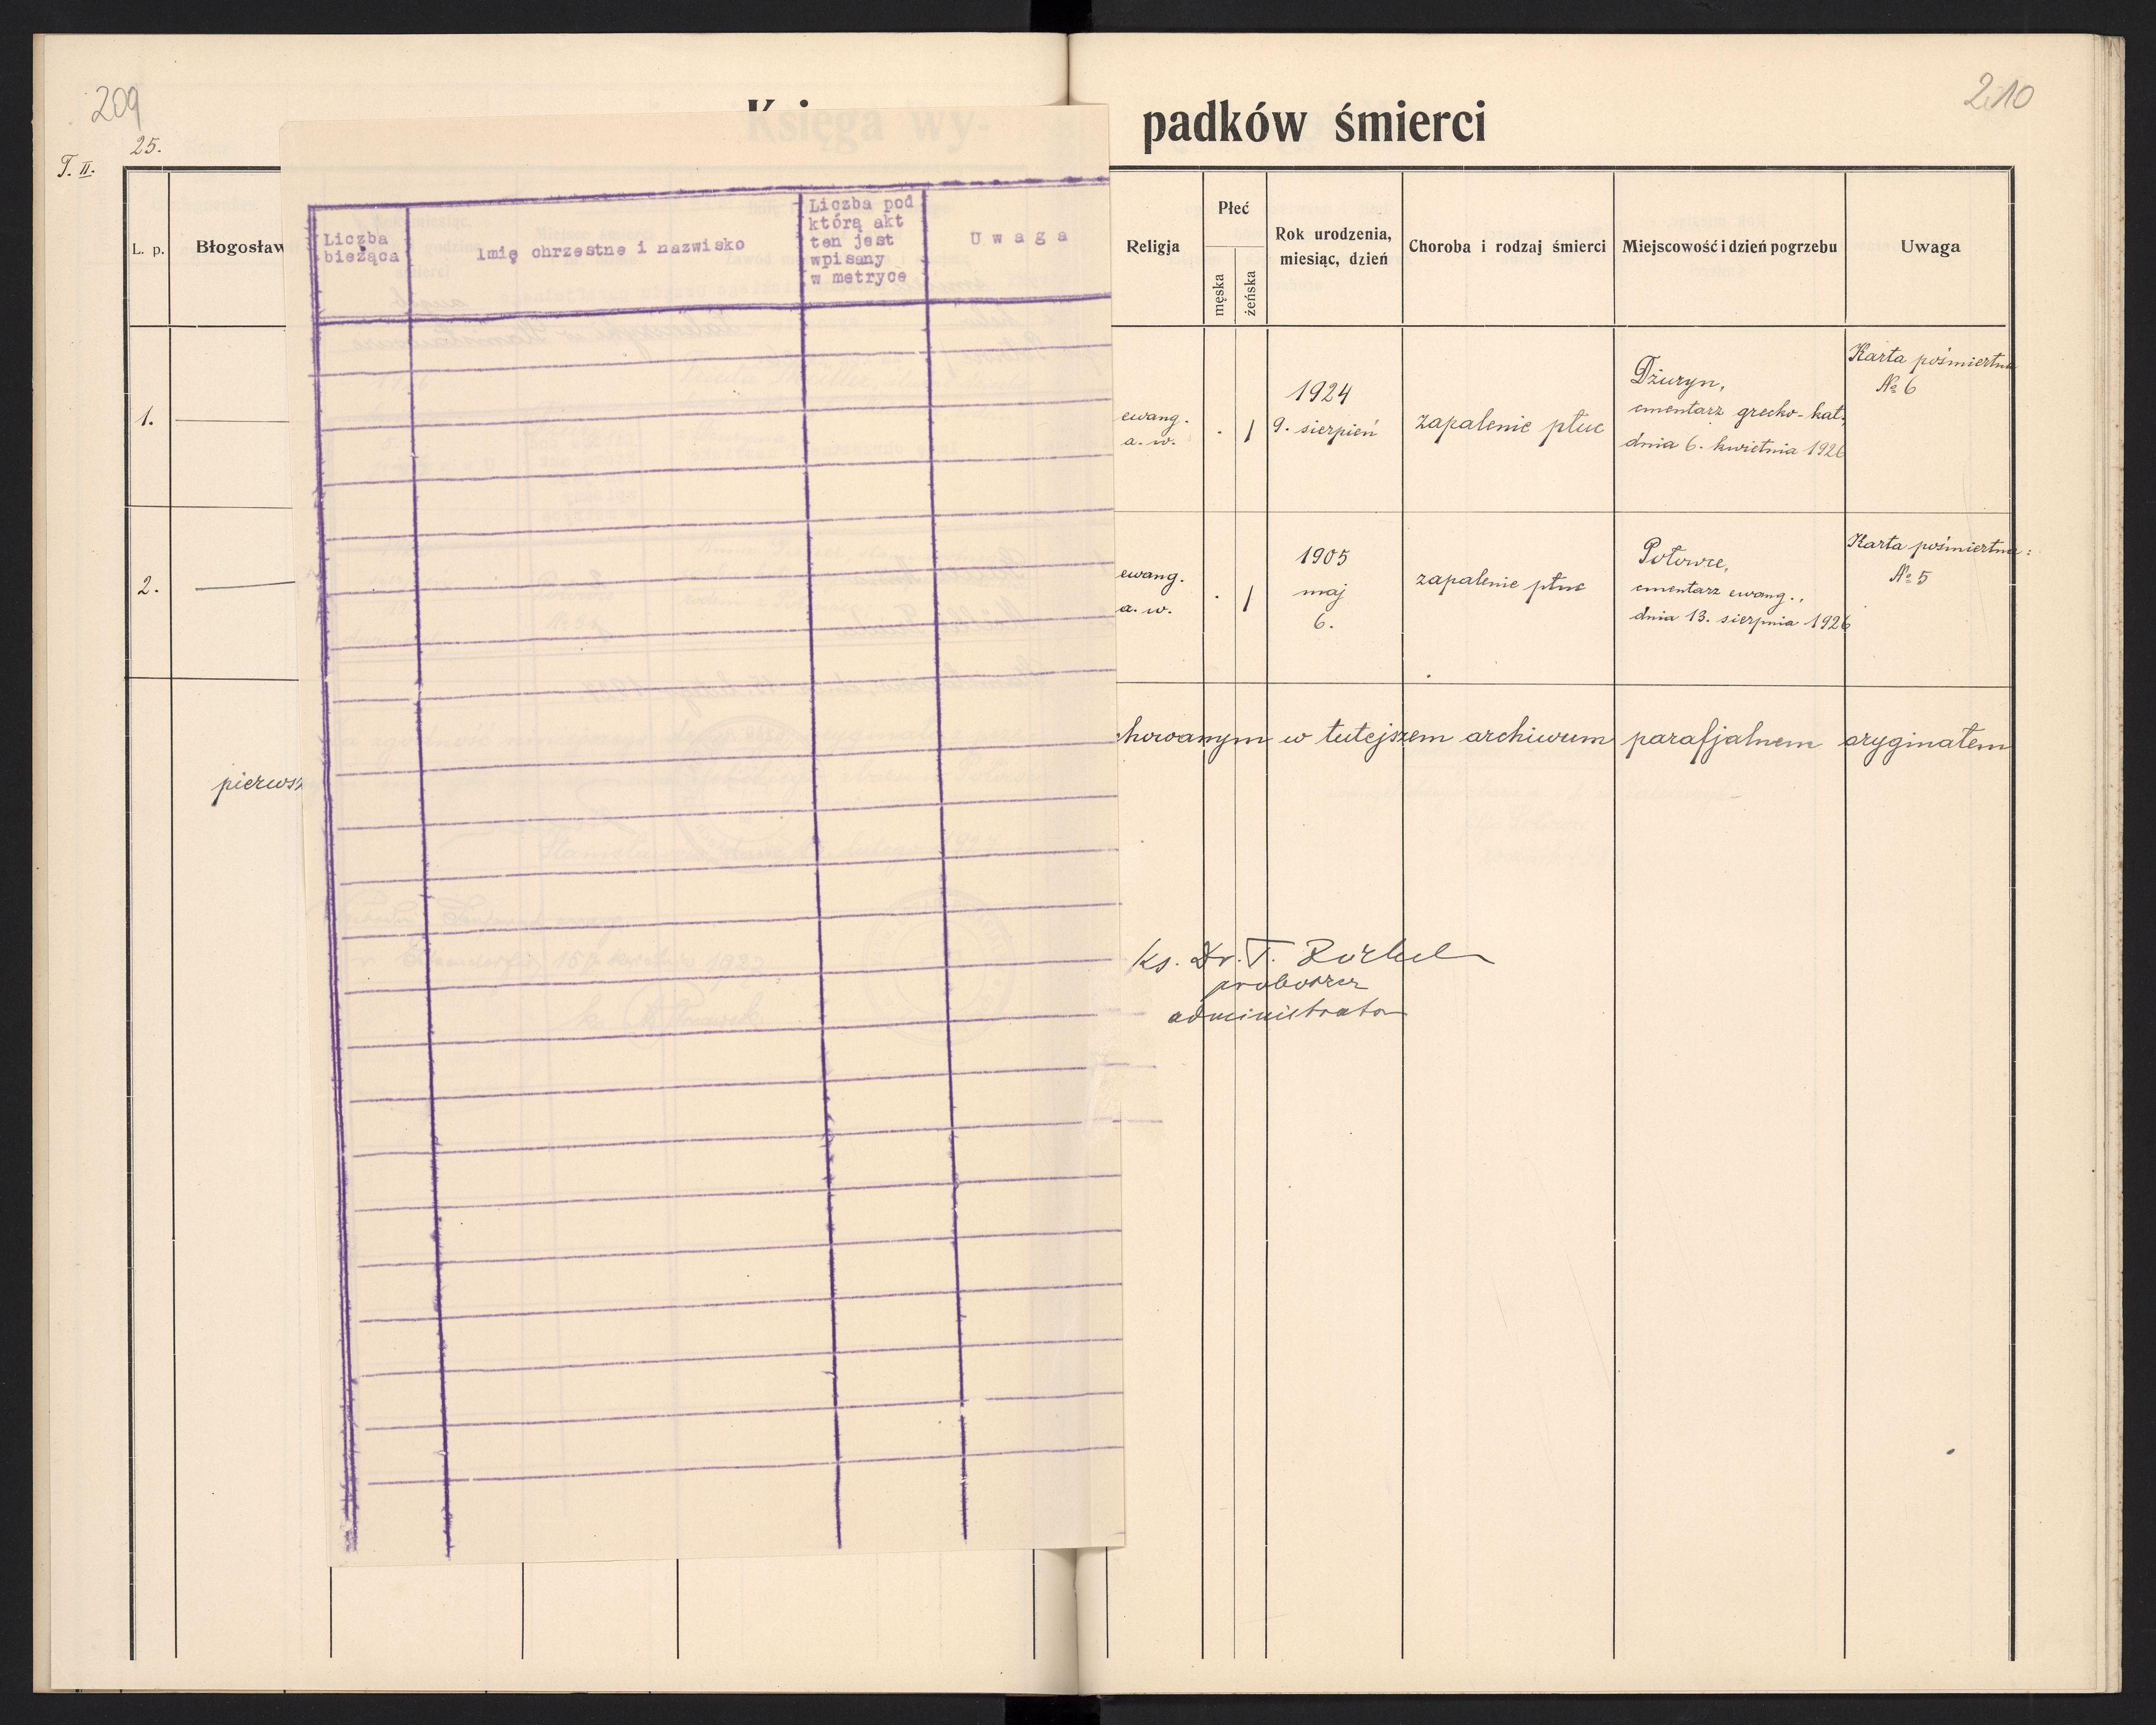 209
210
T. II.
25.
Księga wy-
padków śmierci
L. p.
Błogosław
Liczba
bieżąca
Imię chrzestne i nazwisko
Liczba pod
którą akt
ten jest
wpisany
w metryce
Uwaga
Religja
Płeć
męska
żeńska
Rok urodzenia,
miesiąc, dzień
Choroba i rodzaj śmierci
Miejscowość i dzień pogrzebu
Uwaga
1.
ewang.
a. w.
1
1924
9. sierpień
zapalenie płuc
Dżuryn,
cmentarz grecko-kat.
dnia 6. kwietnia 1926
Karta pośmiertna
№ 6
2.
ewang.
a. w.
1
1905
maj
6.
zapalenie płuc
Połowce,
cmentarz ewang.,
dnia 13. sierpnia 1926
Karta pośmiertna:
№ 5
pierwsz
chowanym w tutejszem archiwum parafjalnem oryginałem
Ks. Dr. T.
proboszcz
administrator